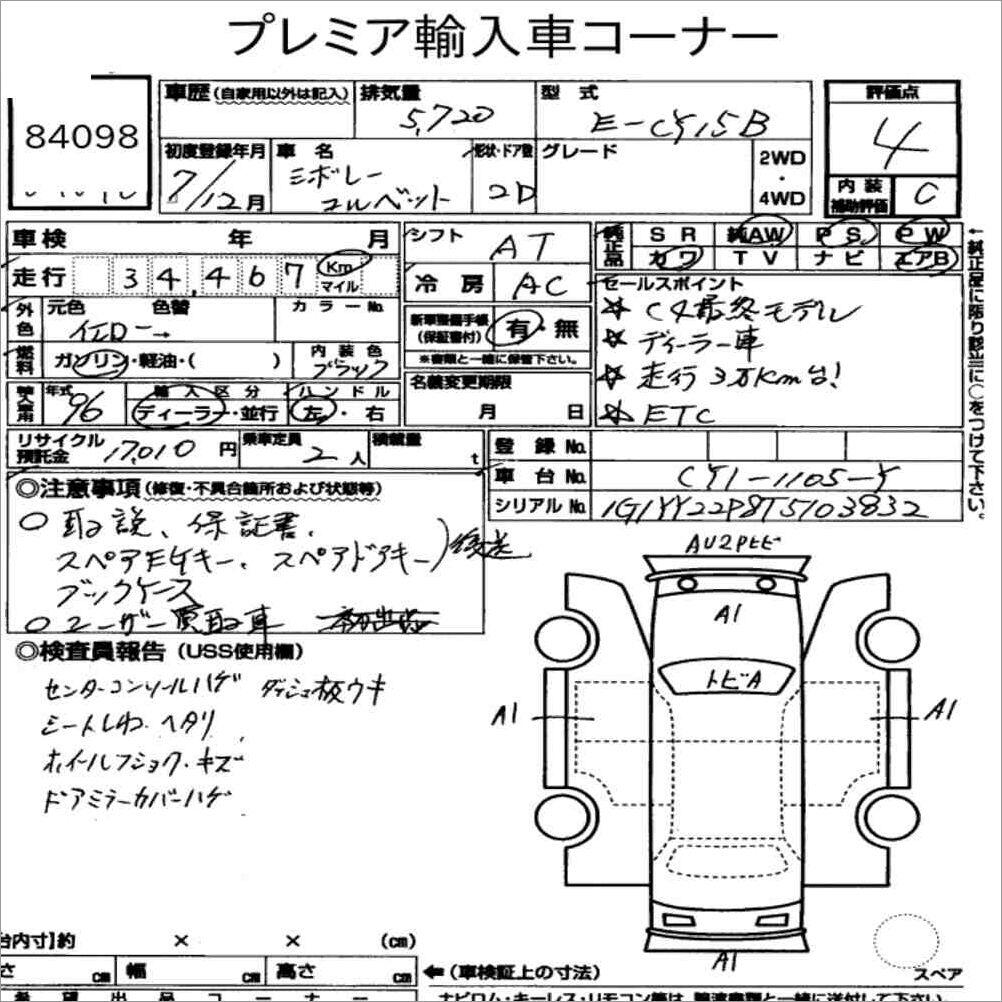 プレミア輸入車コーナー
84098
車歴(自家用以外は記入)
排気量
5,720
型 式
E-CY15B
評価点
4
初度登録年月
7/12月
車 名
シボレー
コルベット
形状・ドア数
2D
グレード
2WD
・
4WD
内 装
補助評価
C
車検 年 月
シフト
AT
純正品
SR 純AW PS PW
カワ TV ナビ エアB
走行 34,467 Km
マイル
冷 房
AC
セールスポイント
☆ C4最終モデル
☆ ディーラー車
☆ 走行3万Km台!
☆ ETC
←純正度に限り該当に○をつけて下さい。
外色
元色 色替
カラーNo.
新車整備手帳
(保証書付)
有・無
※書類と一緒に保管下さい。
燃料
ガソリン・軽油・( )
内 装 色
ブラック
名義変更期限
月 日
輸入車用
年式
96
輸 入 区 分
ディーラー・並行
ハンドル
左・右
リサイクル
預託金
17,010 円
乗車定員
2人
積載量
t
登 録 No.
車 台 No.
CY1-1105-Y
シリアル No.
1G1YY22P8T5103832
◎注意事項(修復・不具合箇所および状態等)
○ 取説、保証書、
スペアモケイキー、スペアドアキー)後送
ブックケース
○ ユーザー買取車
◎検査員報告(USS使用欄)
センターコンソールハゲ ダッシュ板ウキ
シートしわ・ヘタリ
ホイールフショク・キズ
ドアミラーカバーハゲ
AU2Pヒビ
A1
トビA
A1
A1
A1
台内寸]約 × × (cm)
さ cm 幅 cm 高さ cm
←(車検証上の寸法)
スペア
希 望 出 品 コ ー ナ ー
ナビロム・キーレス・リモコン等は、譲渡書類と一緒に送付して下さい。